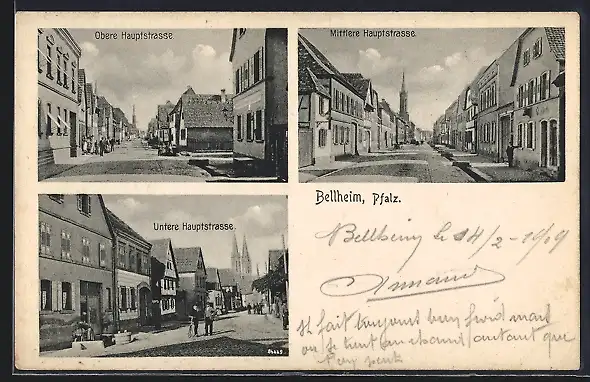 Obere Hauptstrasse
Mittlere Hauptstrasse.
Untere Hauptstrasse.
Bellheim, Pfalz.
Bellheim le 14/2-1919
Armand
Il fait toujours bien froid mais
on se tient en chaud autant que
l'on peut